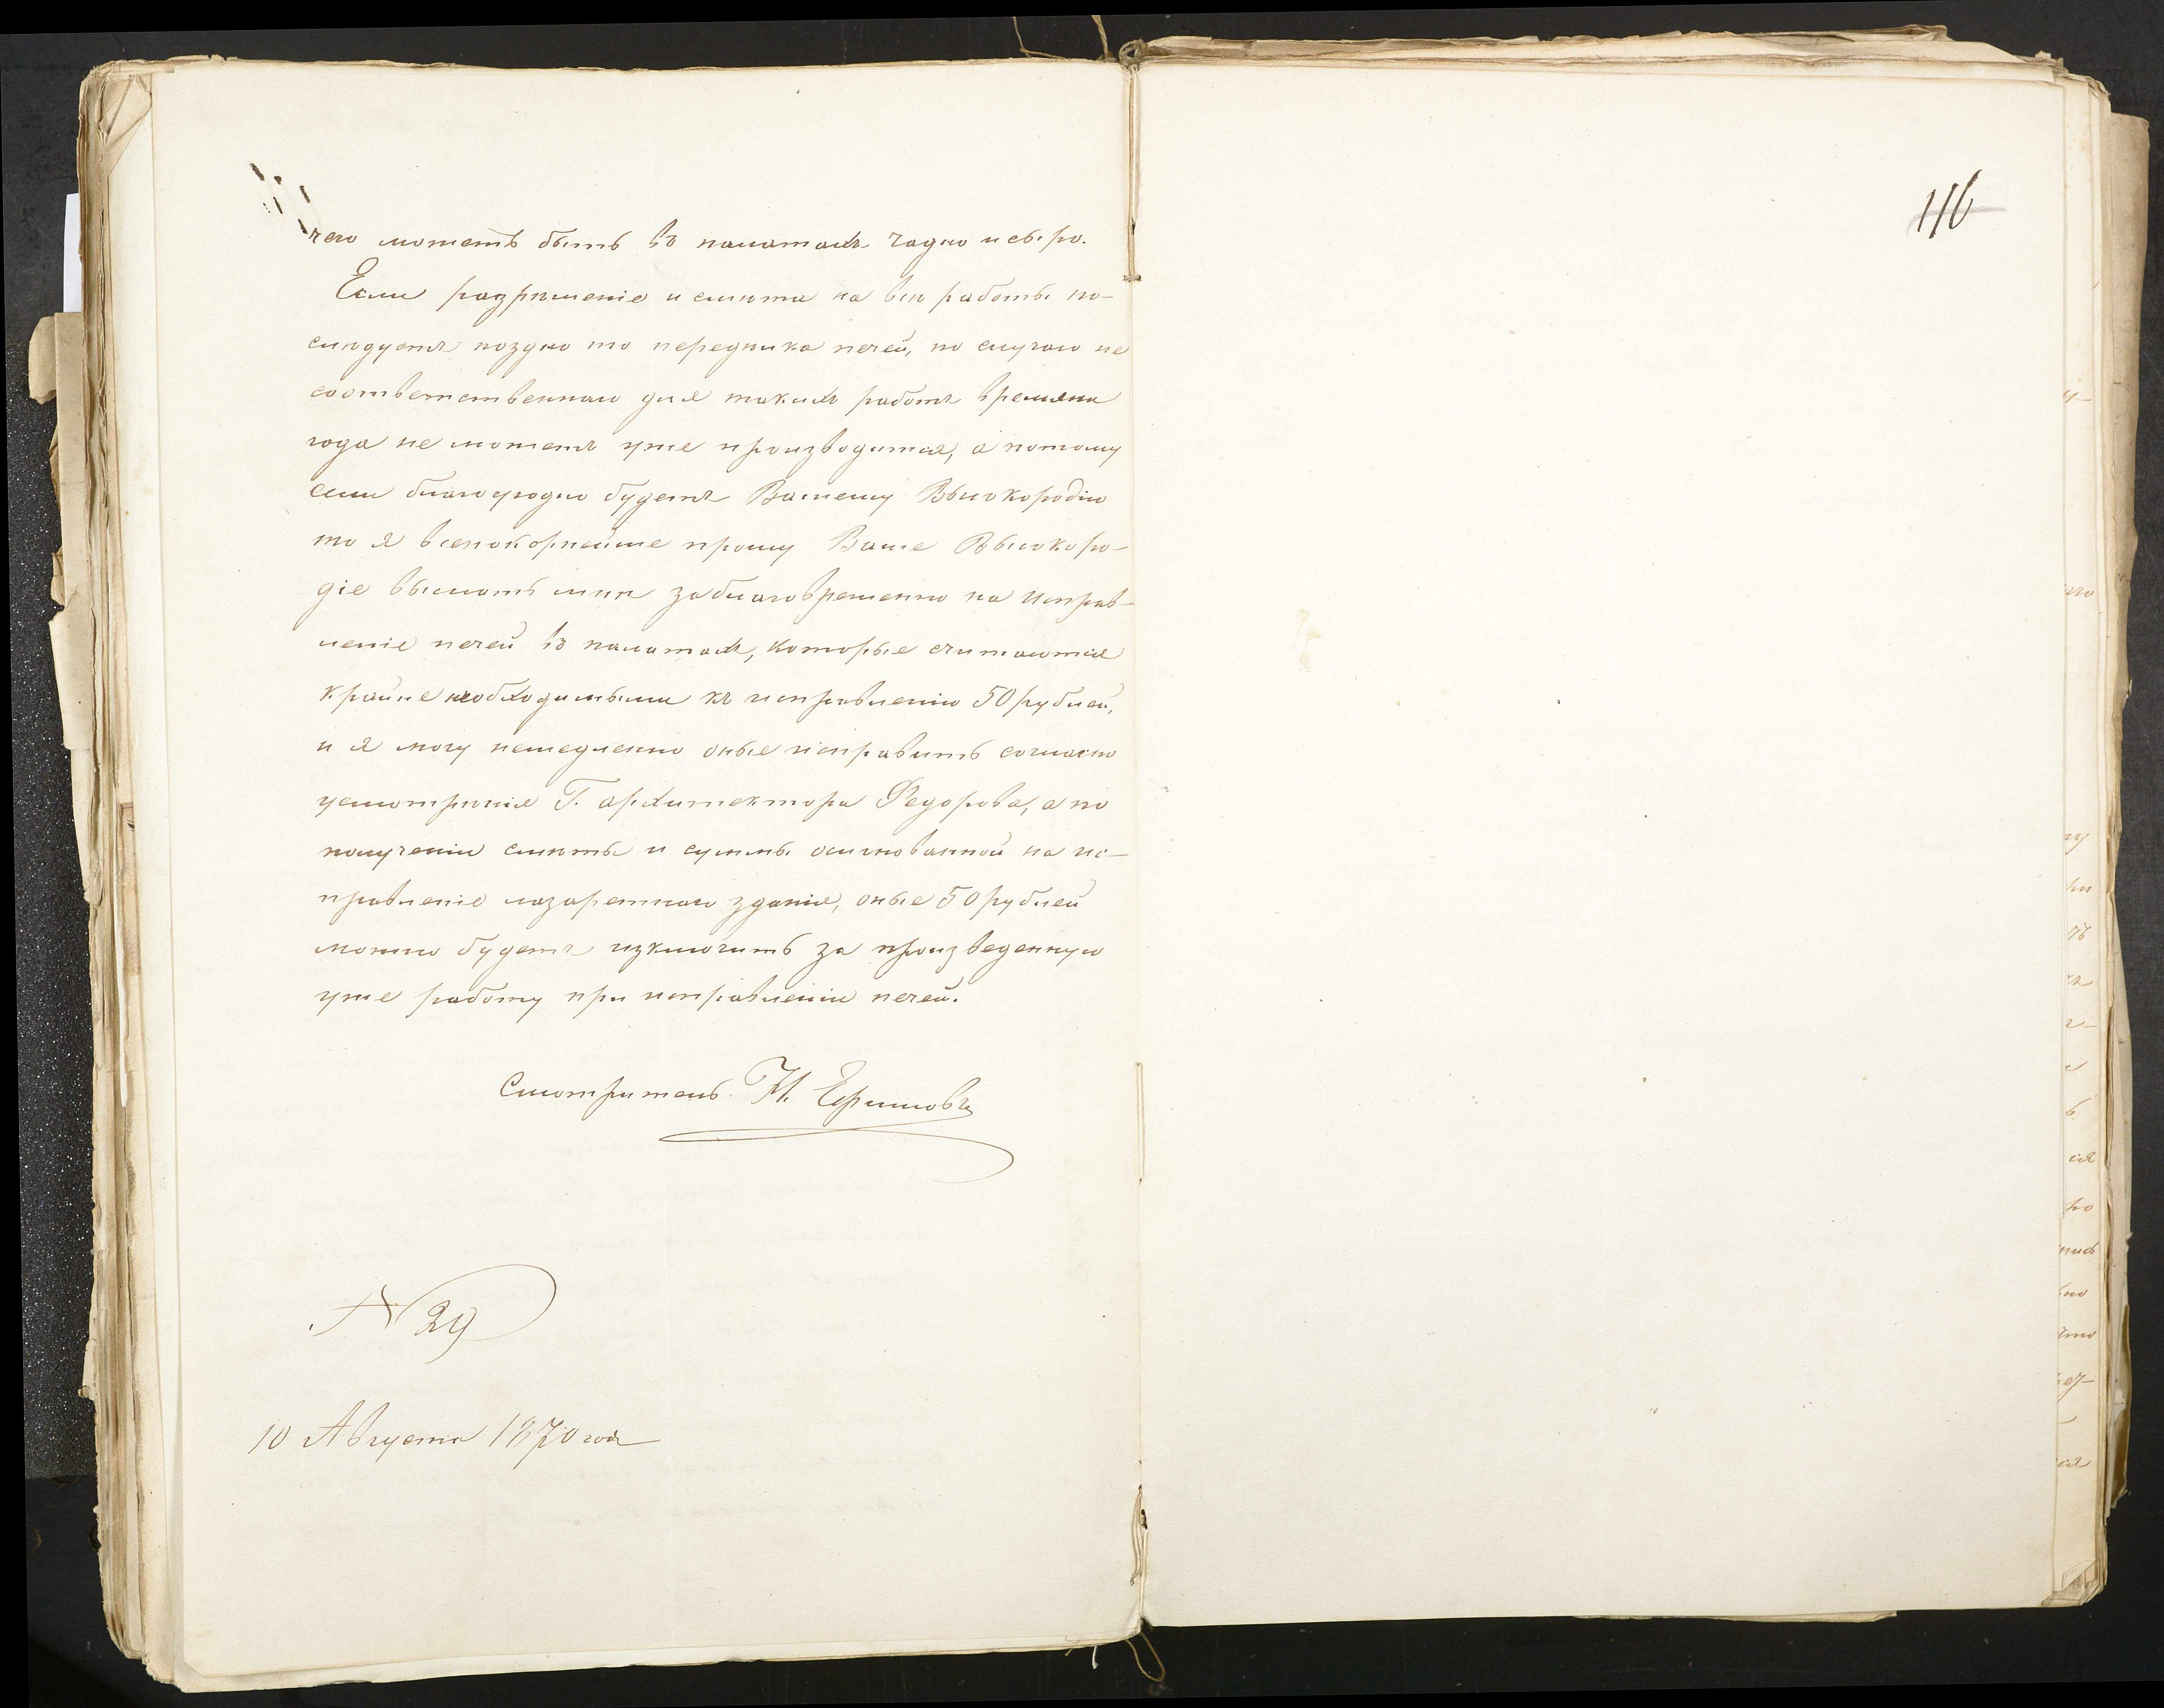 чего можетъ быть въ палатахъ чадно и сыро.
Если разрѣшеніе и смѣта на всѣ работы по-
слѣдуетъ поздно то передѣлка печей, по случаю не
соотвѣтственнаго для такихъ работъ времени
года не можетъ уже производится, а потому
если благоугодно будетъ Вашему Высокородію
то я всепокорнейше прошу Ваше Высокоро-
діе выслать мнѣ заблаговременно на исправ-
леніе печей въ палатахъ, которые считаются
крайне необходимыми къ исправленію 50 рублей,
и я могу немедленно оные исправить согласно
усмотрѣнія Г. архитектора Федорова, а по
полученіи смѣты и суммы осигнованной на ис-
правленіе лазаретнаго зданія, оные 50 рублей
можно будетъ изключить за произведенную
уже работу при исправленіи печей.
Смотритель Н.
№ 29
10 Августа 1870 года
116